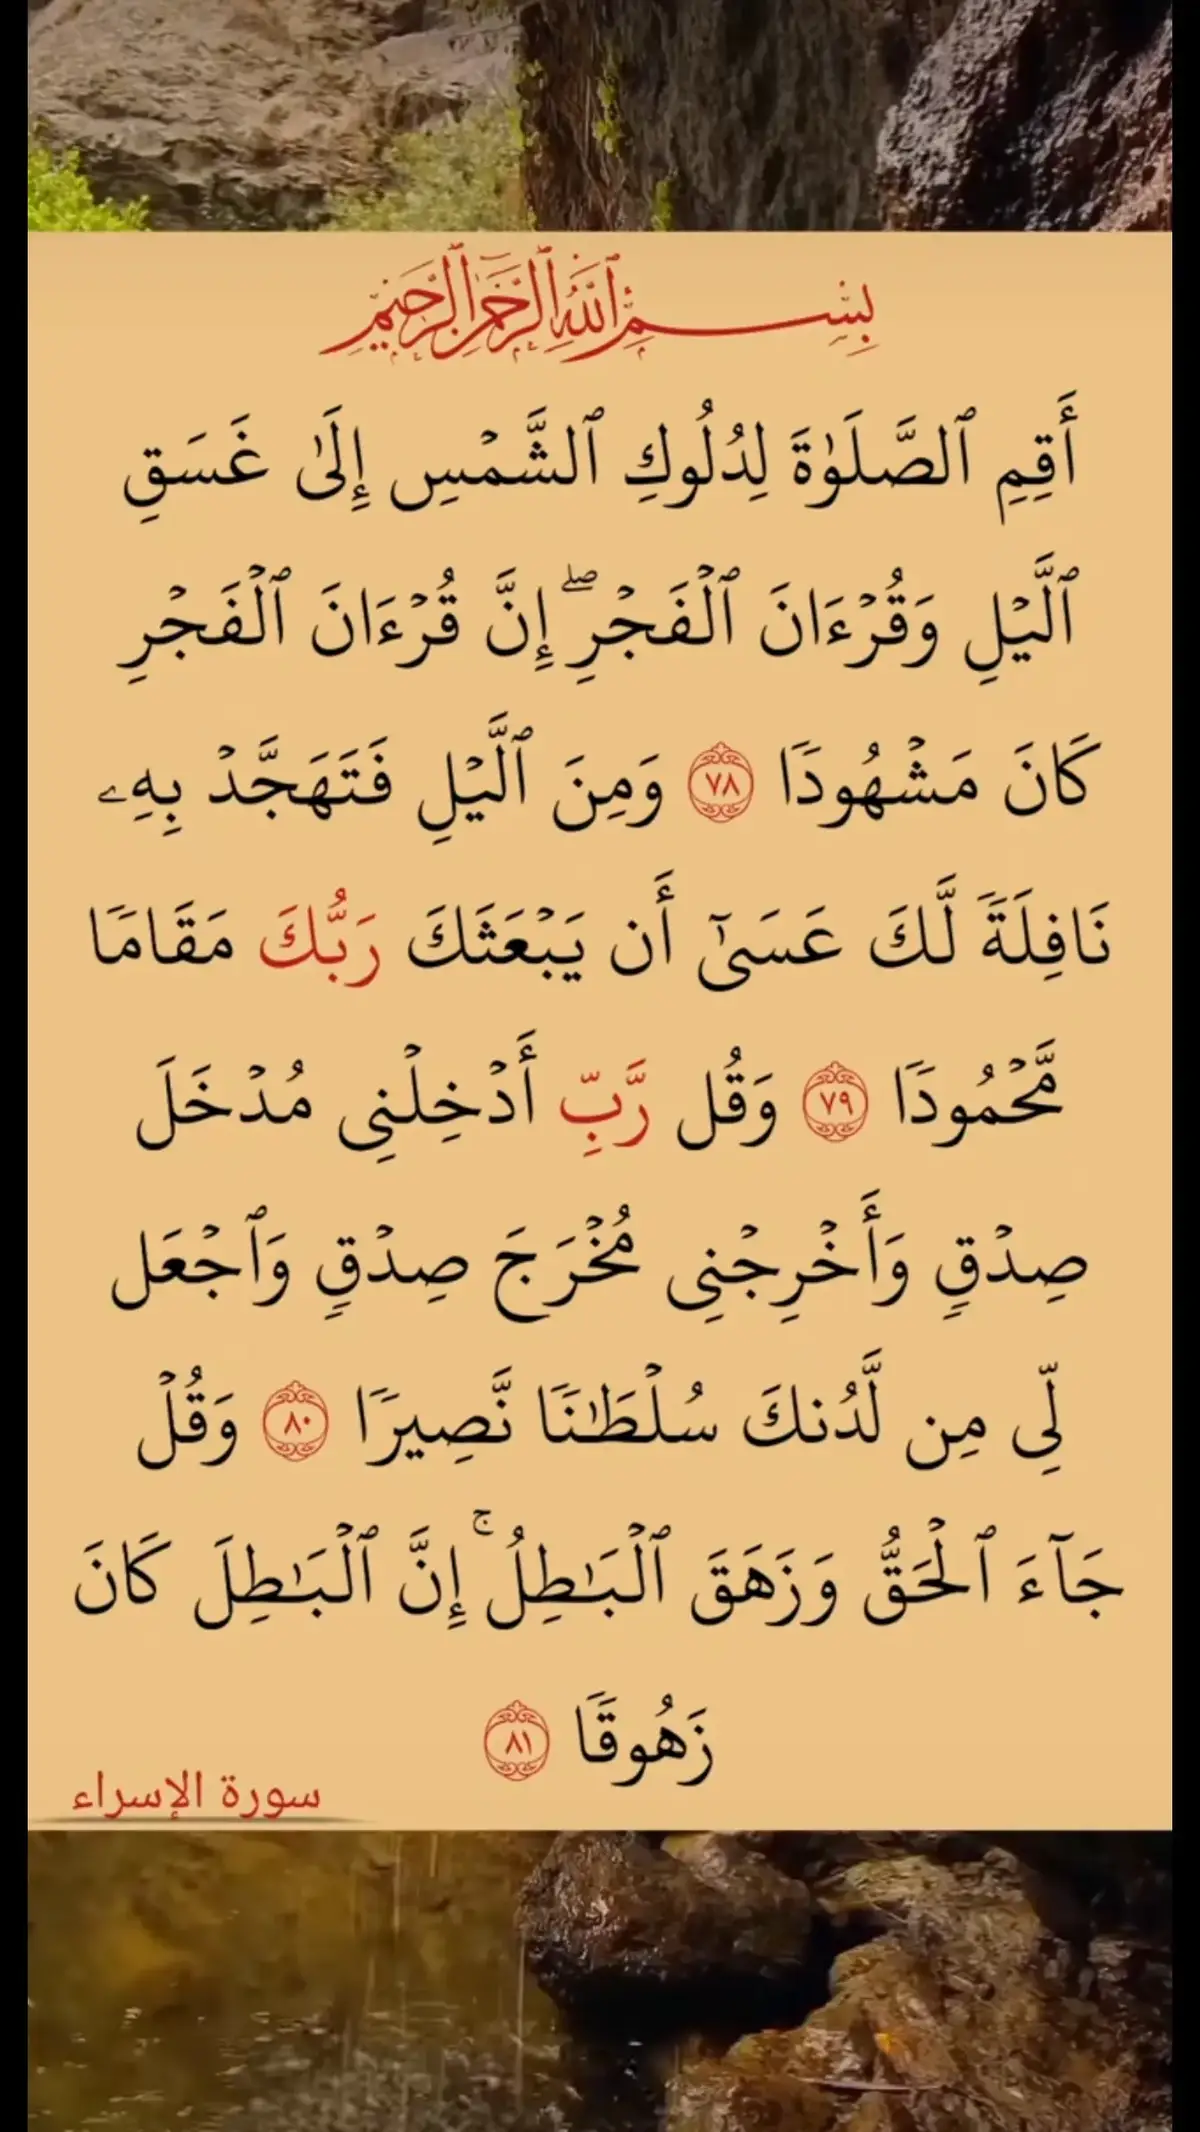 بِسْمِ ٱللَّهِ ٱلرَّحْمَٰنِ ٱلرَّحِيمِ
أَقِمِ ٱلصَّلَوٰةَ لِدُلُوكِ ٱلشَّمْسِ إِلَىٰ غَسَقِ
ٱلَّيْلِ وَقُرْءَانَ ٱلْفَجْرِ ۖ إِنَّ قُرْءَانَ ٱلْفَجْرِ
كَانَ مَشْهُودًا ٧٨ وَمِنَ ٱلَّيْلِ فَتَهَجَّدْ بِهِۦ
نَافِلَةً لَّكَ عَسَىٰٓ أَن يَبْعَثَكَ رَبُّكَ مَقَامًا
مَّحْمُودًا ٧٩ وَقُل رَّبِّ أَدْخِلْنِى مُدْخَلَ
صِدْقٍ وَأَخْرِجْنِى مُخْرَجَ صِدْقٍ وَٱجْعَل
لِّى مِن لَّدُنكَ سُلْطَٰنًا نَّصِيرًا ٨٠ وَقُلْ
جَآءَ ٱلْحَقُّ وَزَهَقَ ٱلْبَٰطِلُ ۚ إِنَّ ٱلْبَٰطِلَ كَانَ
زَهُوقًا ٨١
سورة الإسراء